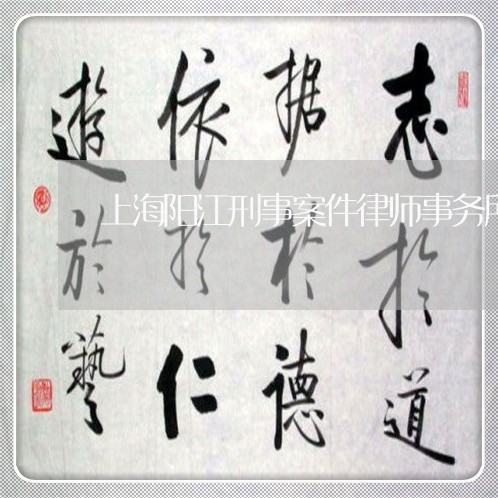 志於道
据於德
依於仁
遊於藝
上海阳江刑事案件律师事务